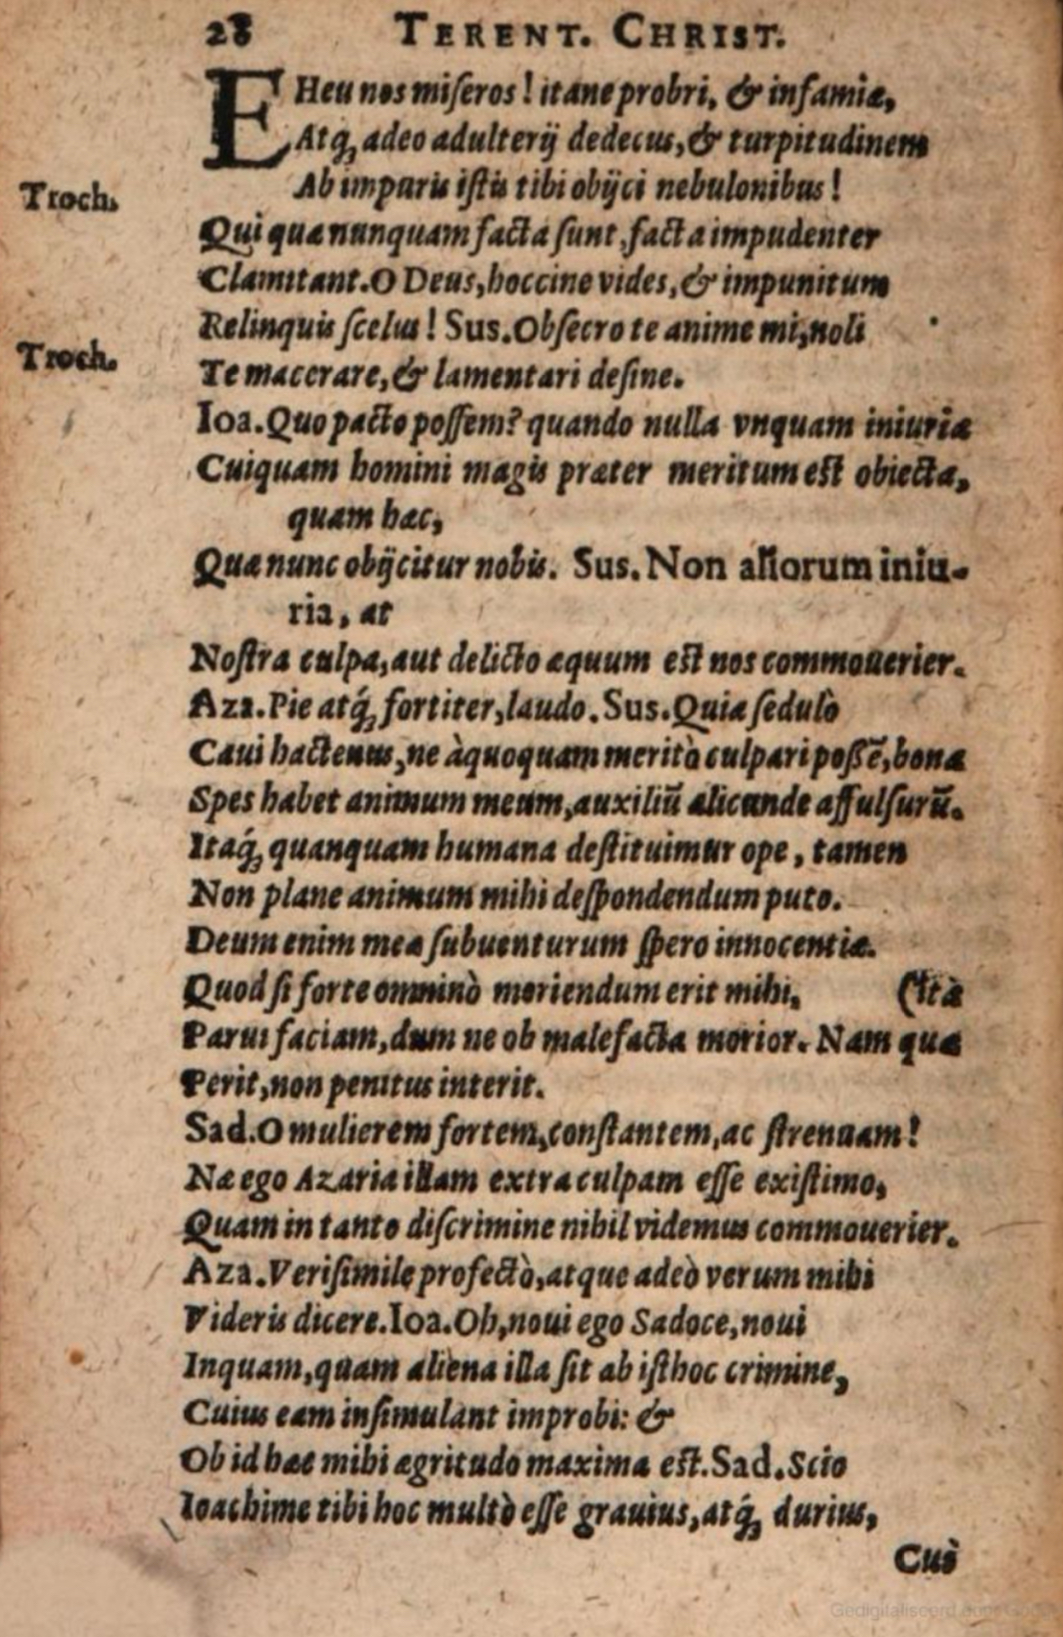 28 TERENT. CHRIST.
EHeu nos miſeros! itane probri, & infamiæ,
Atq́; adeo adulterij dedecus, & turpitudinem
Troch.
Ab impuris iſtis tibi obijci nebulonibus!
Qui quæ nunquam facta ſunt, facta impudenter
Clamitant. O Deus, hoccine vides, & impunitum
Relinquis ſcelus! Sus. Obſecro te anime mi, noli
Troch.
Te macerare, & lamentari deſine.
Ioa. Quo pacto poſſem? quando nulla vnquam iniuria
Cuiquam homini magis præter meritum eſt obiecta,
quam hæc,
Quæ nunc obijcitur nobis. Sus. Non aliorum iniu-
ria, at
Noſtra culpa, aut delicto æquum eſt nos commouerier.
Aza. Pie atq́; fortiter, laudo. Sus. Quia ſedulò
Caui hactenus, ne à quoquam meritò culpari poſsẽ, bona
Spes habet animum meum, auxiliũ alicunde affulſurũ.
Itaq́; quanquam humana deſtituimur ope, tamen
Non plane animum mihi deſpondendum puto.
Deum enim meæ ſubuenturum ſpero innocentiæ.
Quod ſi forte omninò moriendum erit mihi, (ità
Parui faciam, dum ne ob malefacta morior. Nam qui
Perit, non penitus interit.
Sad. O mulierem fortem, conſtantem, ac ſtrenuam!
Næ ego Azaria illam extra culpam eſſe exiſtimo,
Quam in tanto diſcrimine nihil videmus commouerier.
Aza. Veriſimile profectò, atque adeò verum mihi
Videris dicere. Ioa. Oh, noui ego Sadoce, noui
Inquam, quam aliena illa ſit ab iſthoc crimine,
Cuius eam inſimulant improbi: &
Ob id hæc mihi ægritudo maxima eſt. Sad. Scio
Ioachime tibi hoc multò eſſe grauius, atq́; durius,
Cui